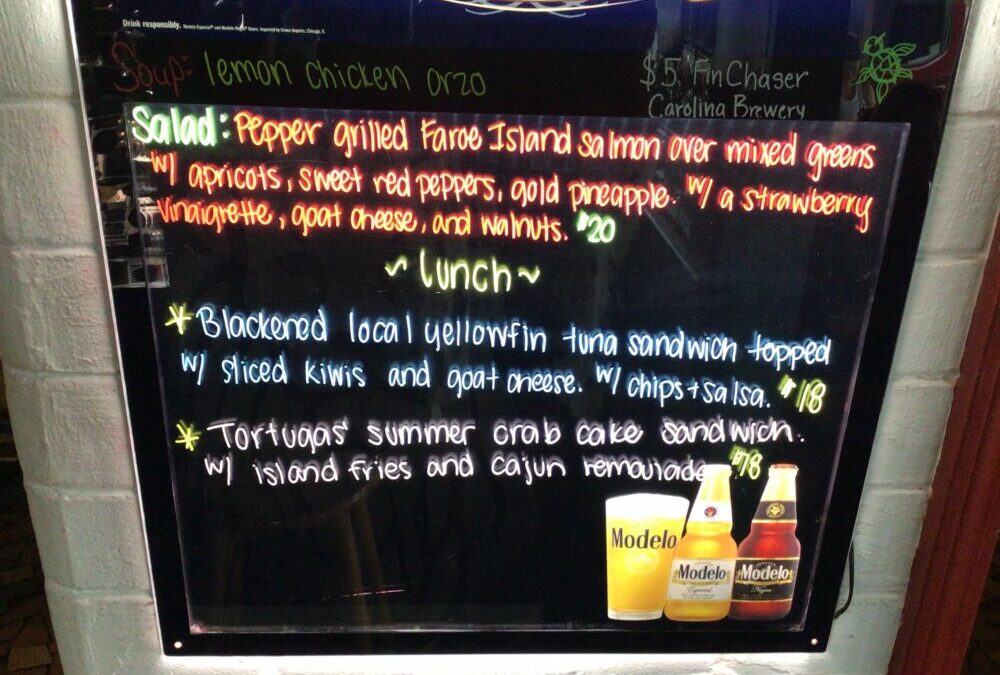 Drink responsibly.
Soup: lemon chicken orzo
$5 Fin Chaser
Carolina Brewery
Salad: Pepper grilled Faroe Island salmon over mixed greens
w/ apricots, sweet red peppers, gold pineapple. w/ a strawberry
vinaigrette, goat cheese, and walnuts. $20
~ Lunch ~
* Blackened local yellowfin tuna sandwich topped
w/ sliced kiwis and goat cheese. w/ chips + salsa. $18
* Tortugas' summer crab cake sandwich.
w/ island fries and cajun remoulade $18
Modelo
Modelo
Especial
Modelo
Negra